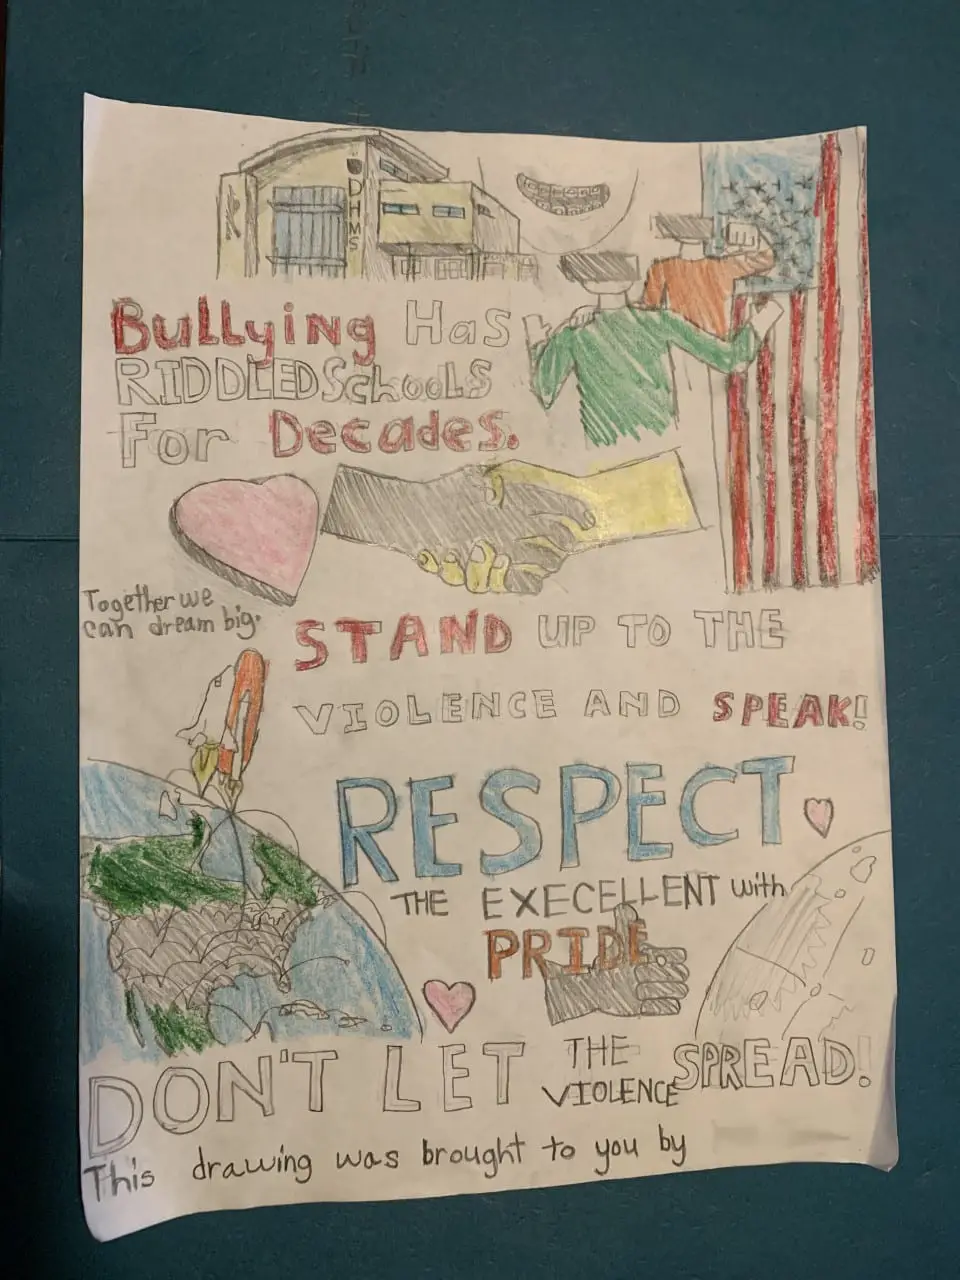 DHMS
BullyinG Has
RIDDLED SchooLS
For Decades.
Together we
can dream big.
STAND UP TO THE
VIOLENCE AND SPEAK!
RESPECT
THE EXECELLENT with
PRIDE.
DON'T LET THE VIOLENCE SPREAD!
This drawing was brought to you by